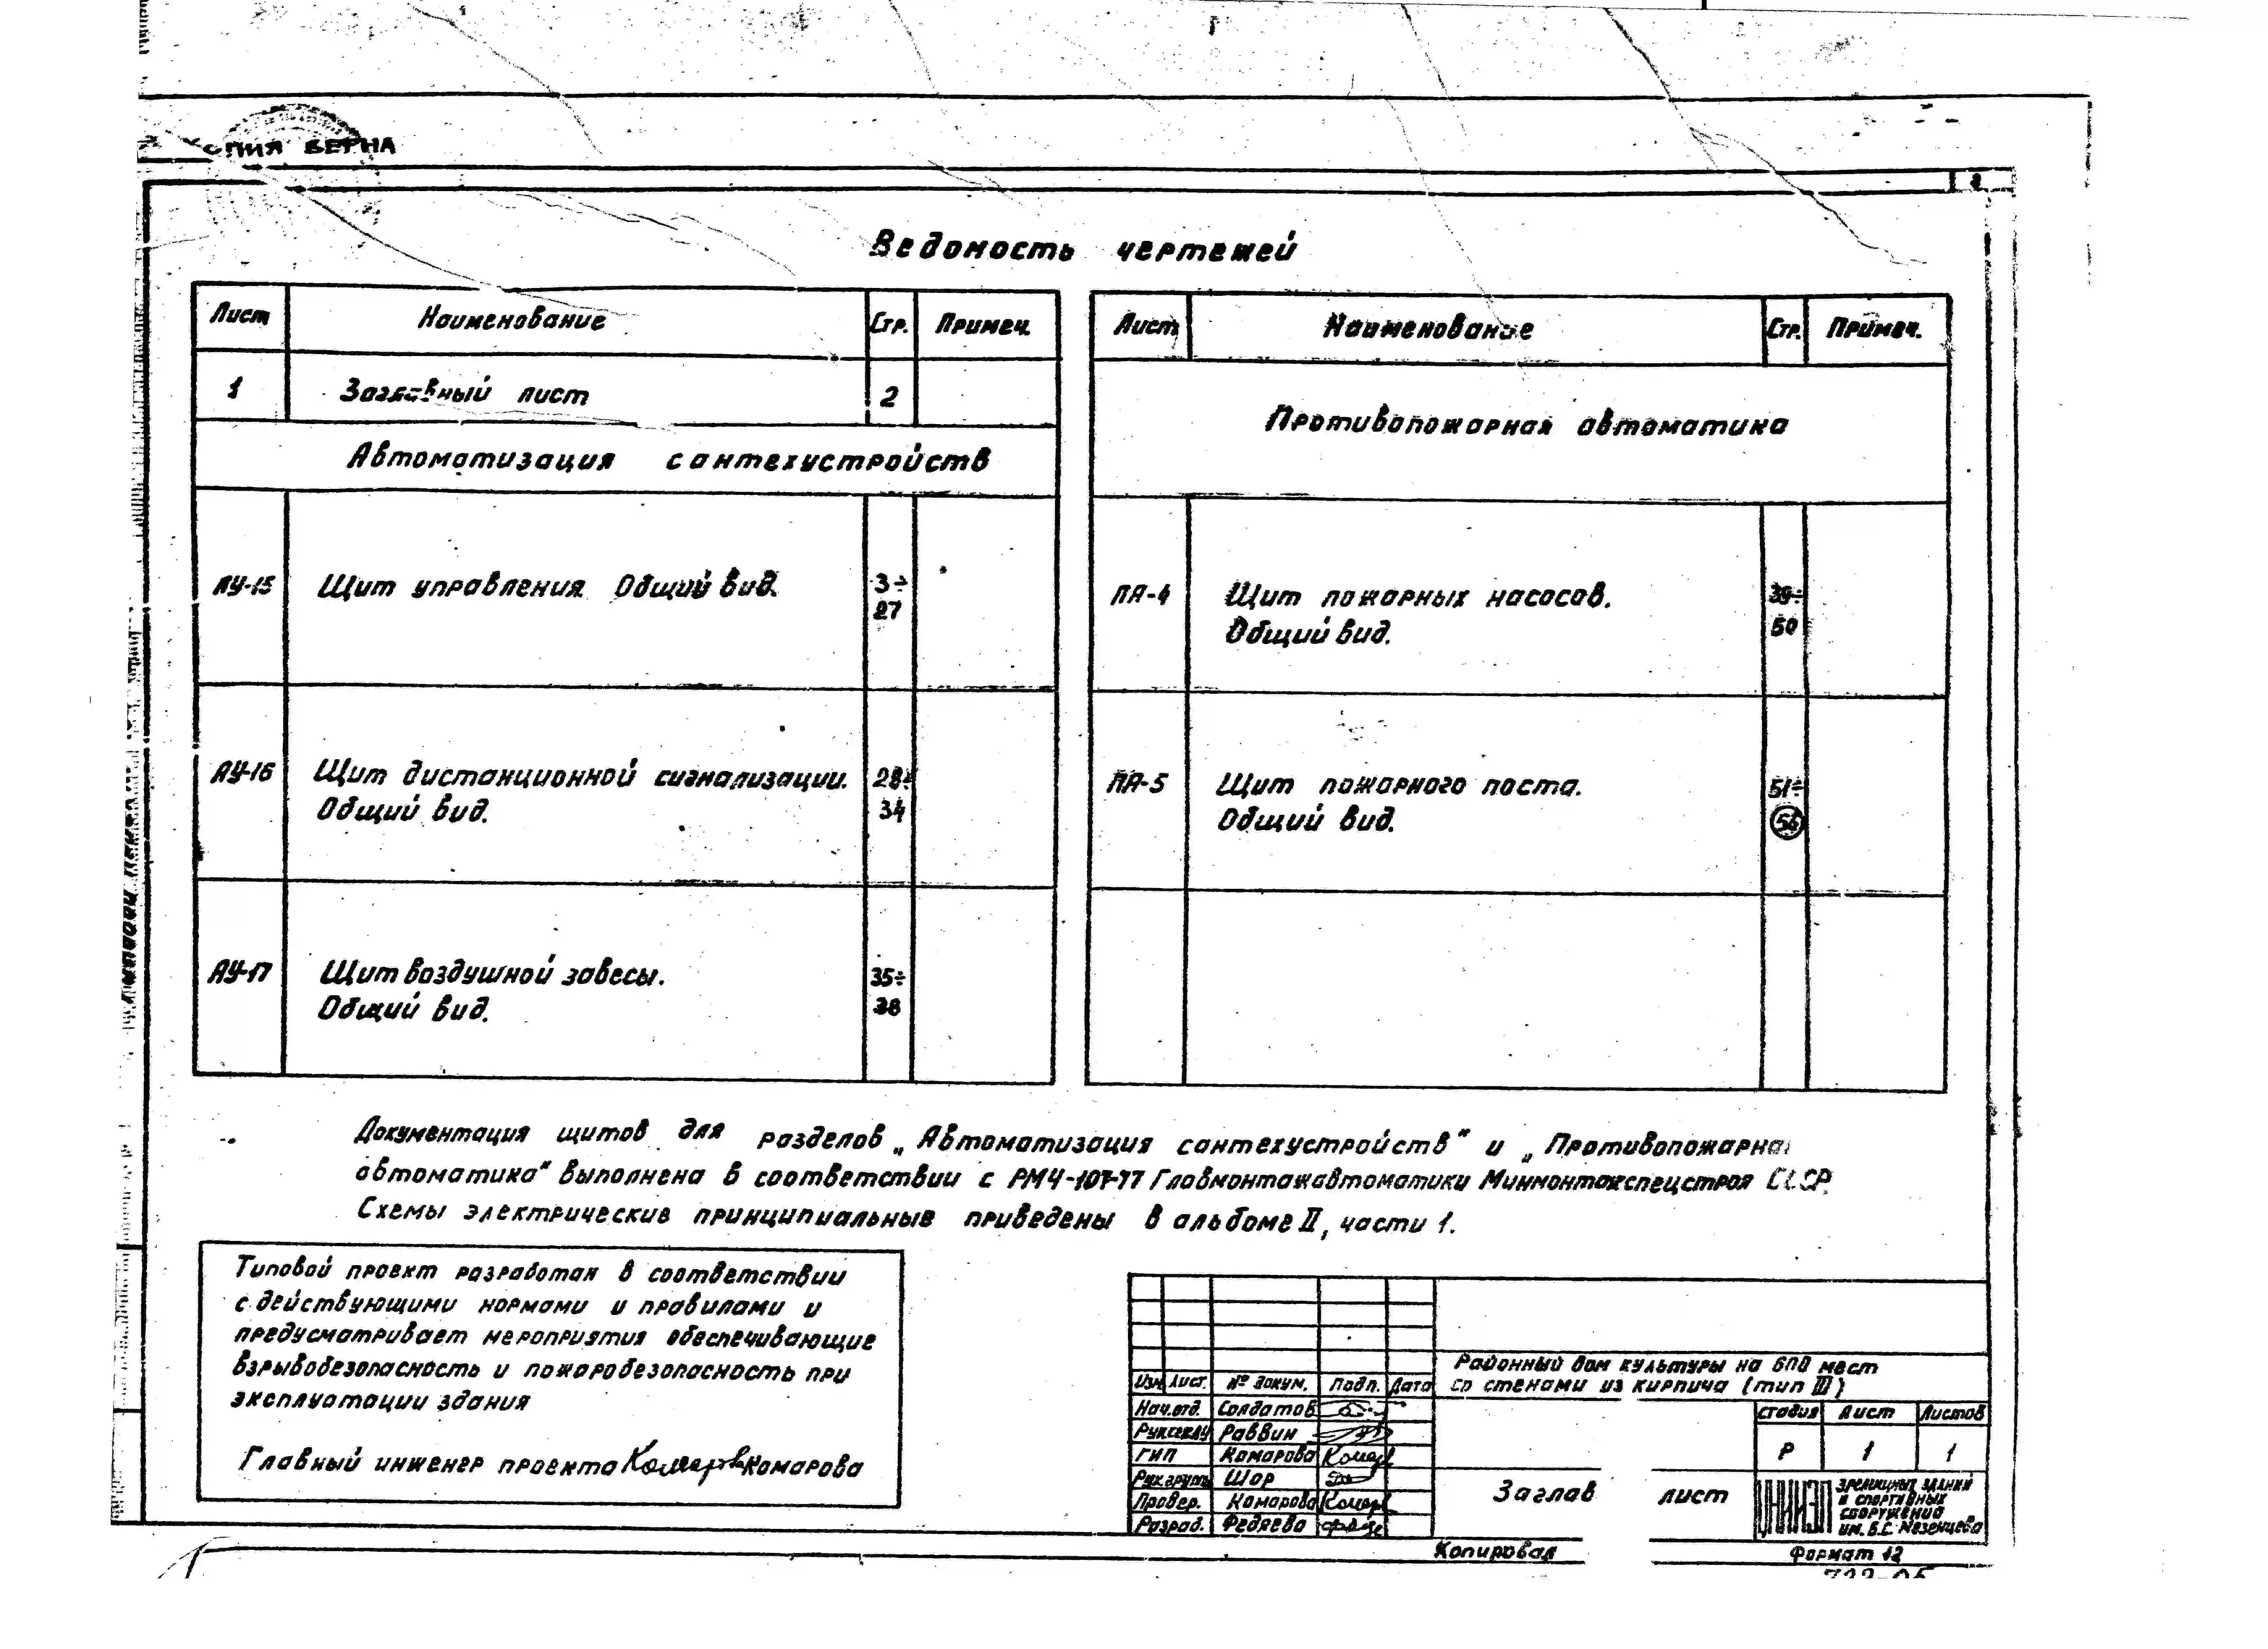 КОПИЯ ВЕРНА
2
Ведомость чертежей
Лист Наименование Стр. Примеч.
1 Заглавный лист 2
Автоматизация сантехустройств
АУ-15 Щит управления. Общий вид. 3÷
27
АУ-16 Щит дистанционной сигнализации. 28÷
Общий вид. 34
АУ-17 Щит воздушной завесы. 35÷
Общий вид. 38
Лист Наименование Стр. Примеч.
Противопожарная автоматика
ПА-4 Щит пожарных насосов. 39÷
Общий вид. 50
ПА-5 Щит пожарного поста. 51÷
Общий вид.
Документация щитов для разделов „Автоматизация сантехустройств" и „Противопожарна
автоматика" выполнена в соответствии с РМ4-107-77 Главмонтажавтоматики Минмонтажспецстроя СССР.
Схемы электрические принципиальные приведены в альбоме II, части 1.
Типовой проект разработан в соответствии
с действующими нормами и правилами и
предусматривает мероприятия обеспечивающие
взрывобезопасность и пожаробезопасность при
эксплуатации здания
Главный инженер проекта Комарова
Районный дом культуры на 600 мест
со стенами из кирпича (тип III)
Изм. Лист. № докум. Подп. Дата
Нач.отд. Солдатов
Раввин
ГИП Комарова
Рук.групп Шор
Провер. Комарова
Разраб. Федяева
стадия Лист Листов
Р 1 1
Заглав лист
ЦНИИЭП зрелищных зданий
и спортивных
сооружений
им. Б.С. Мезенцева
Копировал Формат 12